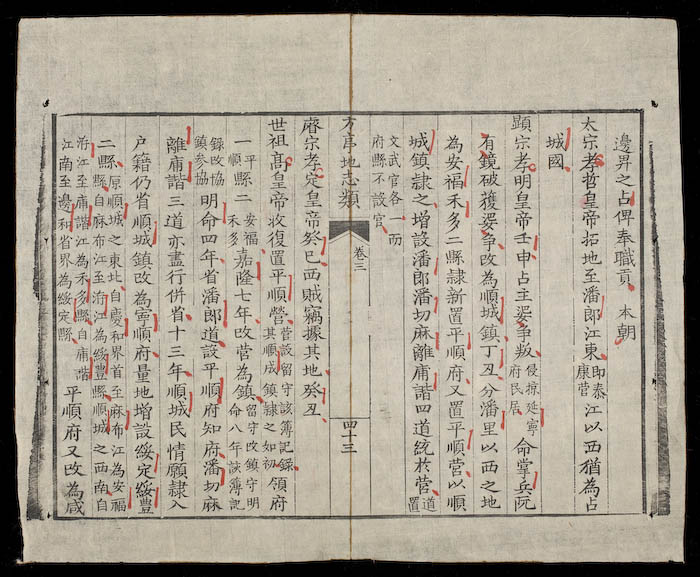 邊昇之占俾奉職貢 本朝
太宗孝哲皇帝拓地至潘郎江東即泰康營江以西猶為占
城國
顯宗孝明皇帝壬申占主婆爭叛侵掠延寧府民居命掌兵阮
有鏡破獲婆爭改為順城鎮丁丑分潘里以西之地
為安福禾多二縣隸新置平順府又置平順營以順
城鎮隸之增設潘郎潘切麻離庸諧四道統於營道置
文武官各一而府縣不設官
方亭地志類
卷三
四十三
睿宗孝定皇帝癸巳西賊竊據其地癸丑
世祖高皇帝收復置平順營營設留守該簿記錄其順成鎮隸之如初領府
一平順縣二安福禾多嘉隆七年改營為鎮留守改鎮守明命八年該簿記
錄改協鎮參協明命四年省潘郎道設平順府知府潘切麻
離庸諧三道亦盡行併省十三年順城民情願隸入
戶籍仍省順城鎮改為寧順府量地增設綏定綏豊
二縣原順城之東北自慶和界首至麻布江為安福縣自麻布江至㳂江為綏豊縣順城之西南自
㳂江至庸諧江為禾多縣自庸諧江南至邊和省界為綏定縣平順府又改為咸